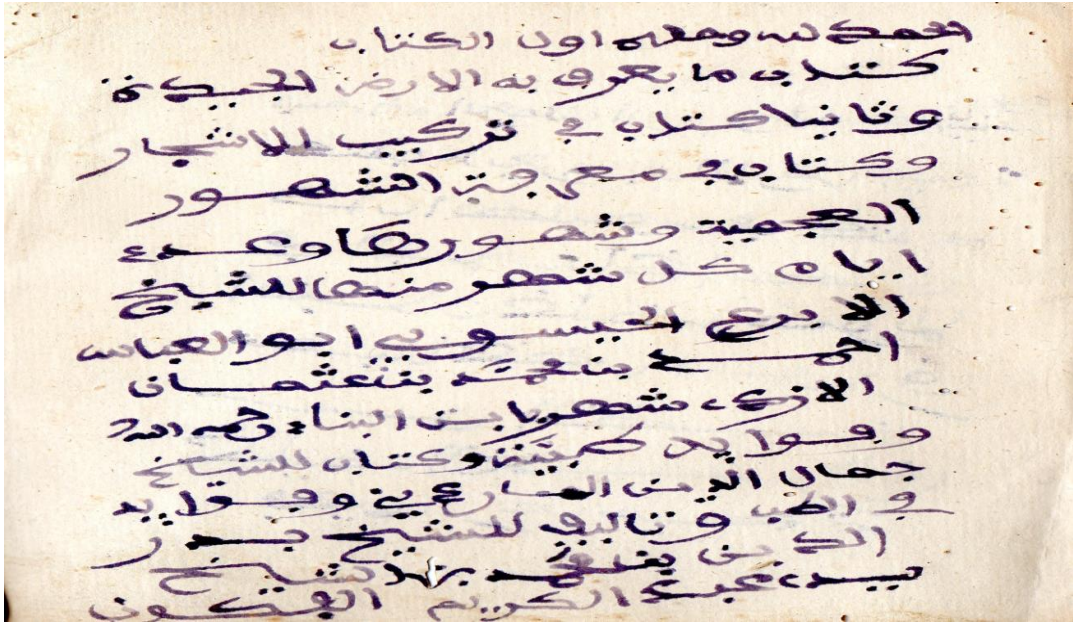 الحمد لله وحده اول الكتاب
كتاب ما يعرف به الارض الجيدة
وثانيا كتاب في تركيب الاشجار
وكتاب في معرفة الشهور
العجمية وشهورها وعدد
ايام كل شهر منها للشيخ
الابرع الحيسوبي ابو العباس
احمد بن محمد بن عثمان
الازدي شهر بابن البناء رحمه الله
وفوايد طبية وكتاب للشيخ
جمال الدين المارديني وفوايد
في الطب وتاليف للشيخ بدر
الدين بن محمد
عبد الكريم الفكون